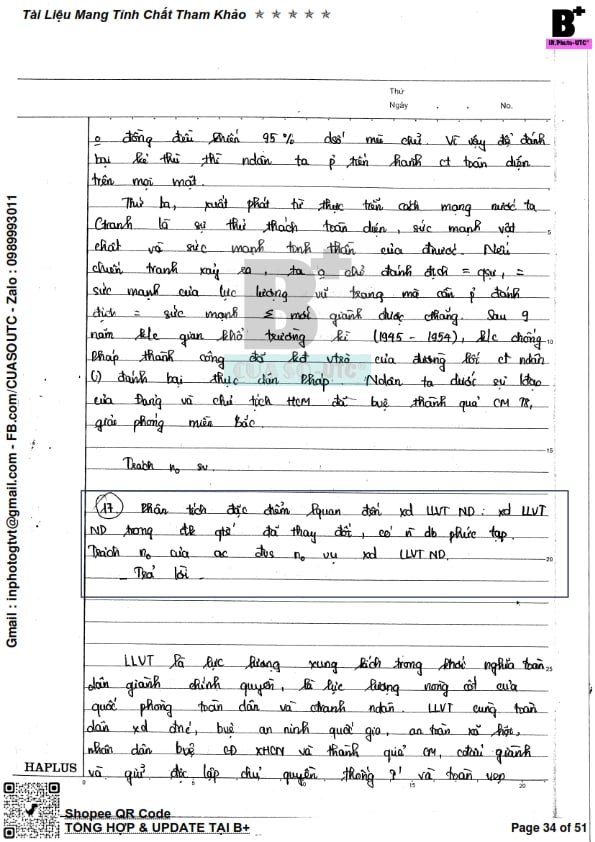 Tài Liệu Mang Tính Chất Tham Khảo ★ ★ ★ ★ ★
B+
IN.Photo-UTC
Thứ
Ngày . . No.
đồng đều khiến 95% đối mù chữ. Vì vậy để đánh
bại kẻ thù thì nhân ta p tiến hành ct toàn diện
trên mọi mặt.
Thứ ba, xuất phát từ thực tiễn cách mạng nước ta
Ctranh là sự thử thách toàn diện, sức mạnh vật
chất và sức mạnh tinh thần của đnước. Nếu
chiến tranh xảy ra, ta o chỉ đánh địch = qsự, =
sức mạnh của lực lượng vũ trang mà cần p đánh
địch = sức mạnh Σ mới giành được thắng. Sau 9
năm k/c gian khổ trường kì (1945 - 1954), k/c chống
Pháp thành công đã kđ vtrò của đường lối ct nhân
(i) đánh bại thực dân Pháp. Nhân ta dưới sự lđạo
của Đảng và chủ tịch HCM đã bvệ thành quả CM T8,
giải phóng miền Bắc.
B+
CUA SO-UTC
Trách no sv.
17. Phân tích đặc điểm lquan đến xd LLVT ND: xd LLVT
ND trong đk qtế đã thay đổi, có n db phức tạp.
Trách no của ac đvs no vụ xd LLVT ND.
- Trả lời -
LLVT là lực lượng xung kích trong khởi nghĩa toàn
dân giành chính quyền, là lực lượng nòng cốt của
quốc phòng toàn dân và ctranh ndân. LLVT cùng toàn
dân xd đnc, bvệ an ninh quốc gia, an toàn xã hội,
nhân dân bvệ CĐ XHCN và thành quả CM, giành
và giữ độc lập chủ quyền thống ? và toàn vẹn
5
15
20
25
HAPLUS
0 5 10 15 20
Gmail : inphotogtvt@gmail.com - FB.com/CUASOUTC - Zalo : 0989993011
Shopee QR Code
TỔNG HỢP & UPDATE TẠI B+
Page 34 of 51